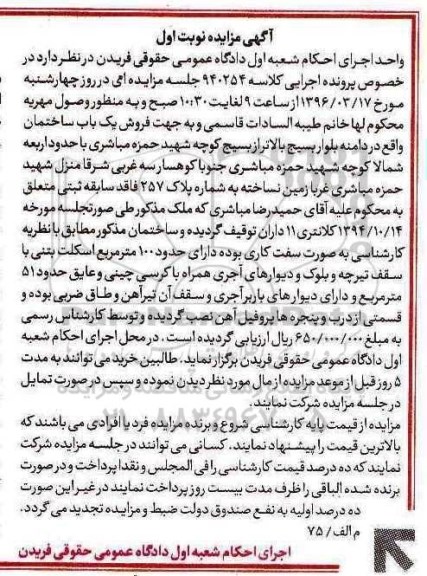 آگهی مزایده نوبت اول
واحد اجرای احکام شعبه اول دادگاه عمومی حقوقی فریدن در نظر دارد در
خصوص پرونده اجرایی کلاسه ۹۴۰۲۵۴ جلسه مزایده ای در روز چهارشنبه
مورخ ۱۳۹۶/۰۳/۱۷ از ساعت ۹ لغایت ۱۰:۳۰ صبح و به منظور وصول مهریه
محکوم لها خانم طیبه السادات قاسمی و به جهت فروش یک باب ساختمان
واقع در دامنه بلوار بسیج بالاتر از بسیج کوچه شهید حمزه مباشری با حدود اربعه
شمالا کوچه شهید حمزه مباشری جنوبا کوهسار سه غربی شرقا منزل شهید
حمزه مباشری غربا زمین نساخته به شماره پلاک ۲۵۷ فاقد سابقه ثبتی متعلق
به محکوم علیه آقای حمیدرضا مباشری که ملک مذکور طی صورتجلسه مورخه
۱۳۹۴/۱۰/۱۴ کلانتری ۱۱ داران توقیف گردیده و ساختمان مذکور مطابق با نظریه
کارشناسی به صورت سفت کاری بوده دارای حدود ۱۰۰ مترمربع اسکلت بتنی با
سقف تیرچه و بلوک و دیوارهای آجری همراه با کرسی چینی و عایق حدود ۵۱
مترمربع و دارای دیوارهای باربر آجری و سقف آن تیرآهن و طاق ضربی بوده و
قسمتی از درب و پنجره ها پروفیل آهن نصب گردیده و توسط کارشناس رسمی
به مبلغ ۶۵۰/۱۰۰/۰۰۰ ریال ارزیابی گردیده است، در محل اجرای احکام شعبه
اول دادگاه عمومی حقوقی فریدن برگزار نماید. طالبین خرید می توانند به مدت
۵ روز قبل از موعد مزایده از مال مورد نظر دیدن نموده و سپس در صورت تمایل
در جلسه مزایده شرکت نمایند.
مزایده از قیمت پایه کارشناسی شروع و برنده مزایده فرد یا افرادی می باشند که
بالاترین قیمت را پیشنهاد نمایند. کسانی می توانند در جلسه مزایده شرکت
نمایند که ده درصد قیمت کارشناسی را فی المجلس و نقدا پرداخت و در صورت
برنده شده الباقی را ظرف مدت بیست روز پرداخت نمایند در غیر این صورت
ده درصد اولیه به نفع صندوق دولت ضبط و مزایده تجدید می گردد.
م الف / ۷۵
اجرای احکام شعبه اول دادگاه عمومی حقوقی فریدن